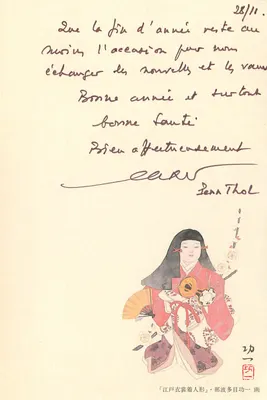 28/11.
Que la fin d'année reste au
moins l'occasion pour nous
échanger des nouvelles et les vœux
Bonne année et surtout
bonne santé
Bien affectueusement
Penn Thol
功一
「江戸衣裳着人形」・那波多目功一 画